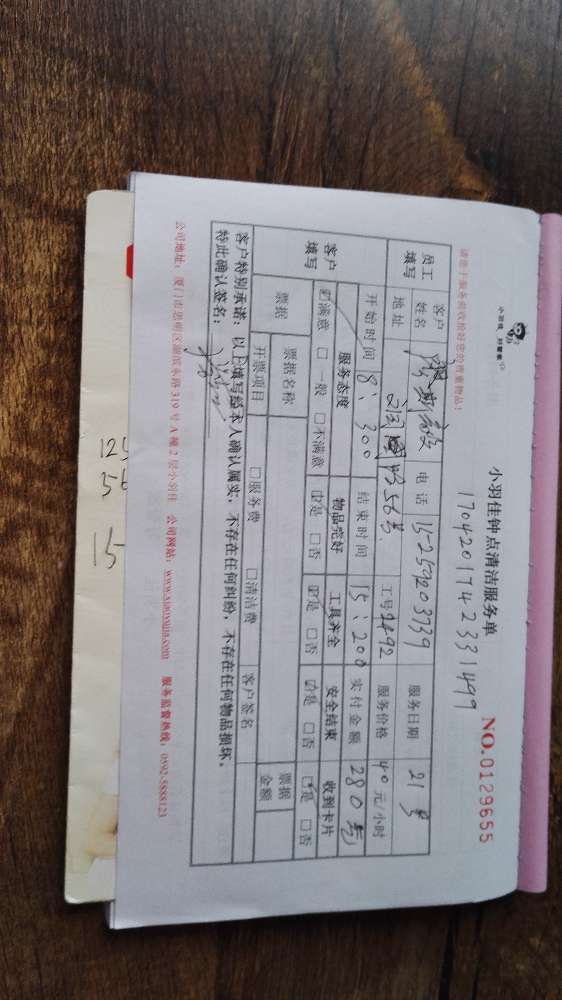 小羽佳 好管家
小羽佳钟点清洁服务单
NO.0129655
1704201742331499
请您于服务前收拾好您的贵重物品!
员工填写
客户姓名
电话
服务日期 21号
地址
56号
工号
服务价格 40元/小时
开始时间 8:300
结束时间 15:200
实付金额 280元
客户填写
服务态度 物品完好 工具齐全 安全结束 收到卡片
☑满意 □一般 □不满意 ☑是 □否 ☑是 □否 ☑是 □否 ☑是 □否
票据
票据名称
票据金额
开票项目 □服务费 □清洁费 客户签名
客户特别承诺:以上填写经本人确认属实,不存在任何纠纷,不存在任何物品损坏。
特此确认签名:
公司地址:厦门市思明区湖滨东路319号A幢2层小羽佳 公司网站:www.xiaoyujia.com 服务监督热线:0592-5888123
125
56
15